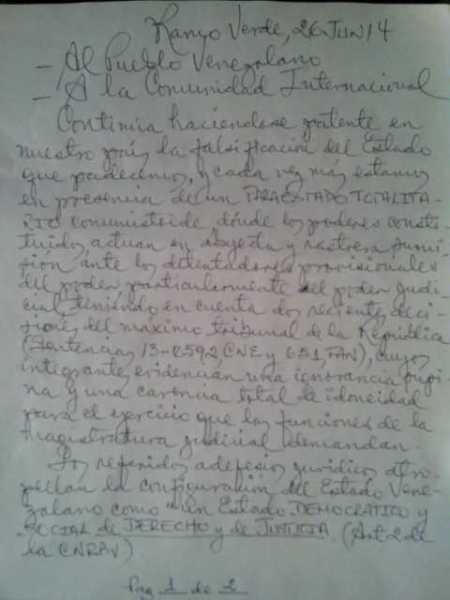 Ramo Verde, 26 JUN 14
- Al Pueblo Venezolano
- A la Comunidad Internacional
Continúa haciéndose patente en
nuestro país la falsificación del Estado
que padecemos, y cada vez más estamos
en presencia de un PARAESTADO TOTALITA-
RIO comunistoide dónde los poderes consti-
tuidos actuan en abyecta y rastrera sumi-
sión ante los detentadores provisionales
del poder particularmente el poder judi-
cial, teniendo en cuenta dos recientes deci-
siones del máximo tribunal de la República
(Sentencias 13-0592, CNE y 651, FAN), cuyos
integrantes evidencian una ignorancia supi-
na y una carencia total de idoneidad
para el ejercicio que las funciones de la
magistratura judicial demandan.
Los referidos adefesios jurídicos atro-
pellan la configuración del Estado Vene-
zolano como "un Estado DEMOCRÁTICO y
SOCIAL de DERECHO y de JUSTICIA. (Art 2 de
la CNRBV)
Pag 1 de 2